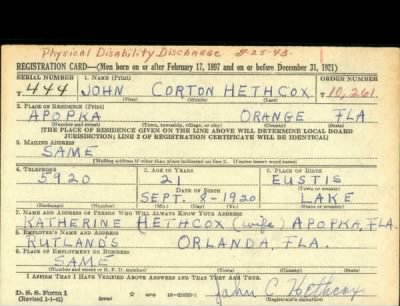 Physical Disability Discharge 9-25-43-
REGISTRATION CARD—(Men born on or after February 17, 1897 and on or before December 31, 1921)
SERIAL NUMBER 1. NAME (Print) ORDER NUMBER
T 444 JOHN CORTON HETHCOX T 10,261
(First) (Middle) (Last)
2. PLACE OF RESIDENCE (Print)
APOPKA ORANGE FLA
(Number and street) (Town, township, village, or city) (County) (State)
(THE PLACE OF RESIDENCE GIVEN ON THE LINE ABOVE WILL DETERMINE LOCAL BOARD
JURISDICTION; LINE 2 OF REGISTRATION CERTIFICATE WILL BE IDENTICAL)
3. MAILING ADDRESS
SAME
(Mailing address if other than place indicated on line 2. If same insert word same)
4. TELEPHONE 5. AGE IN YEARS 6. PLACE OF BIRTH
5920 21 EUSTIS
DATE OF BIRTH (Town or county)
SEPT. 8-1920 LAKE
(Exchange) (Number) (Mo.) (Day) (Yr.) (State or country)
7. NAME AND ADDRESS OF PERSON WHO WILL ALWAYS KNOW YOUR ADDRESS
KATHERINE HETHCOX (wife) APOPKA, FLA.
8. EMPLOYER'S NAME AND ADDRESS
RUTLANDS ORLANDA, FLA.
9. PLACE OF EMPLOYMENT OR BUSINESS
SAME
(Number and street or R. F. D. number) (Town) (County) (State)
I AFFIRM THAT I HAVE VERIFIED ABOVE ANSWERS AND THAT THEY ARE TRUE.
D. S. S. Form 1
(Revised 1-1-42) (over) John C Hethcox
(Registrant's signature)